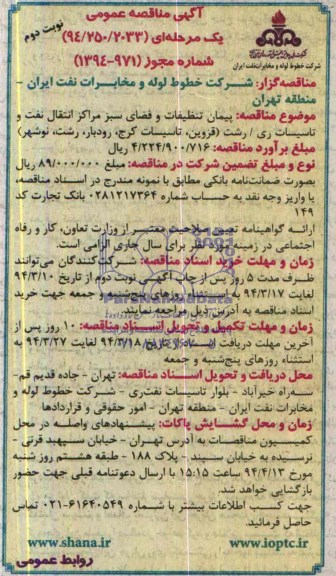 آگهی مناقصه عمومی
نوبت دوم
یک مرحله‌ای (۹۴/۲۵۰/۲۰۳۳)
شماره مجوز (۹۷۱-۱۳۹۴)
شرکت خطوط لوله و مخابرات نفت ایران
مناقصه‌گزار: شرکت خطوط لوله و مخابرات نفت ایران -
منطقه تهران
موضوع مناقصه: پیمان تنظیفات و فضای سبز مراکز انتقال نفت و
تاسیسات ری / رشت (قزوین، تاسیسات کرج، رودبار، رشت، نوشهر)
مبلغ برآورد مناقصه: ۴/۲۲۴/۹۰۰/۷۱۶ ریال
نوع و مبلغ تضمین شرکت در مناقصه: مبلغ ۸۹/۰۰۰/۰۰۰ ریال
بصورت ضمانت‌نامه بانکی مطابق با نمونه مندرج در اسناد مناقصه،
یا واریز وجه نقد به حساب شماره ۰۲۸۱۲۱۷۳۶۴ بانک تجارت کد
۱۴۹
ارائه گواهینامه تعیین صلاحیت معتبر از وزارت تعاون، کار و رفاه
اجتماعی در زمینه نظر برای سال جاری الزامی است.
زمان و مهلت خرید اسناد مناقصه: شرکت‌کنندگان می‌توانند
ظرف مدت ۵ روز پس از چاپ آگهی نوبت دوم از تاریخ ۹۴/۳/۱۰
لغایت ۹۴/۳/۱۷ به استثناء روزهای پنج‌شنبه و جمعه جهت خرید
اسناد مناقصه به آدرس ذیل مراجعه نمایند.
زمان و مهلت تکمیل و تحویل اسناد مناقصه: ۱۰ روز پس از
آخرین مهلت دریافت اسناد از تاریخ ۹۴/۳/۱۸ لغایت ۹۴/۳/۲۷ به
استثناء روزهای پنج‌شنبه و جمعه
محل دریافت و تحویل اسناد مناقصه: تهران - جاده قدیم قم-
سه‌راه خیرآباد - بلوار تاسیسات نفت‌ری - شرکت خطوط لوله و
مخابرات نفت ایران - منطقه تهران - امور حقوقی و قراردادها
زمان و محل گشایش پاکات: پیشنهادهای واصله در محل
کمیسیون مناقصات به آدرس تهران - خیابان سپهبد قرنی -
نرسیده به خیابان سپند - پلاک ۱۸۸ - طبقه هشتم روز شنبه
مورخ ۹۴/۴/۱۳ ساعت ۱۵:۱۵ با ارسال دعوتنامه قبلی جهت حضور
بازگشایی خواهد شد.
جهت کسب اطلاعات بیشتر با شماره ۶۱۶۴۰۵۴۹-۰۲۱ تماس
حاصل فرمائید.
www.shana.ir www.ioptc.ir
روابط عمومی